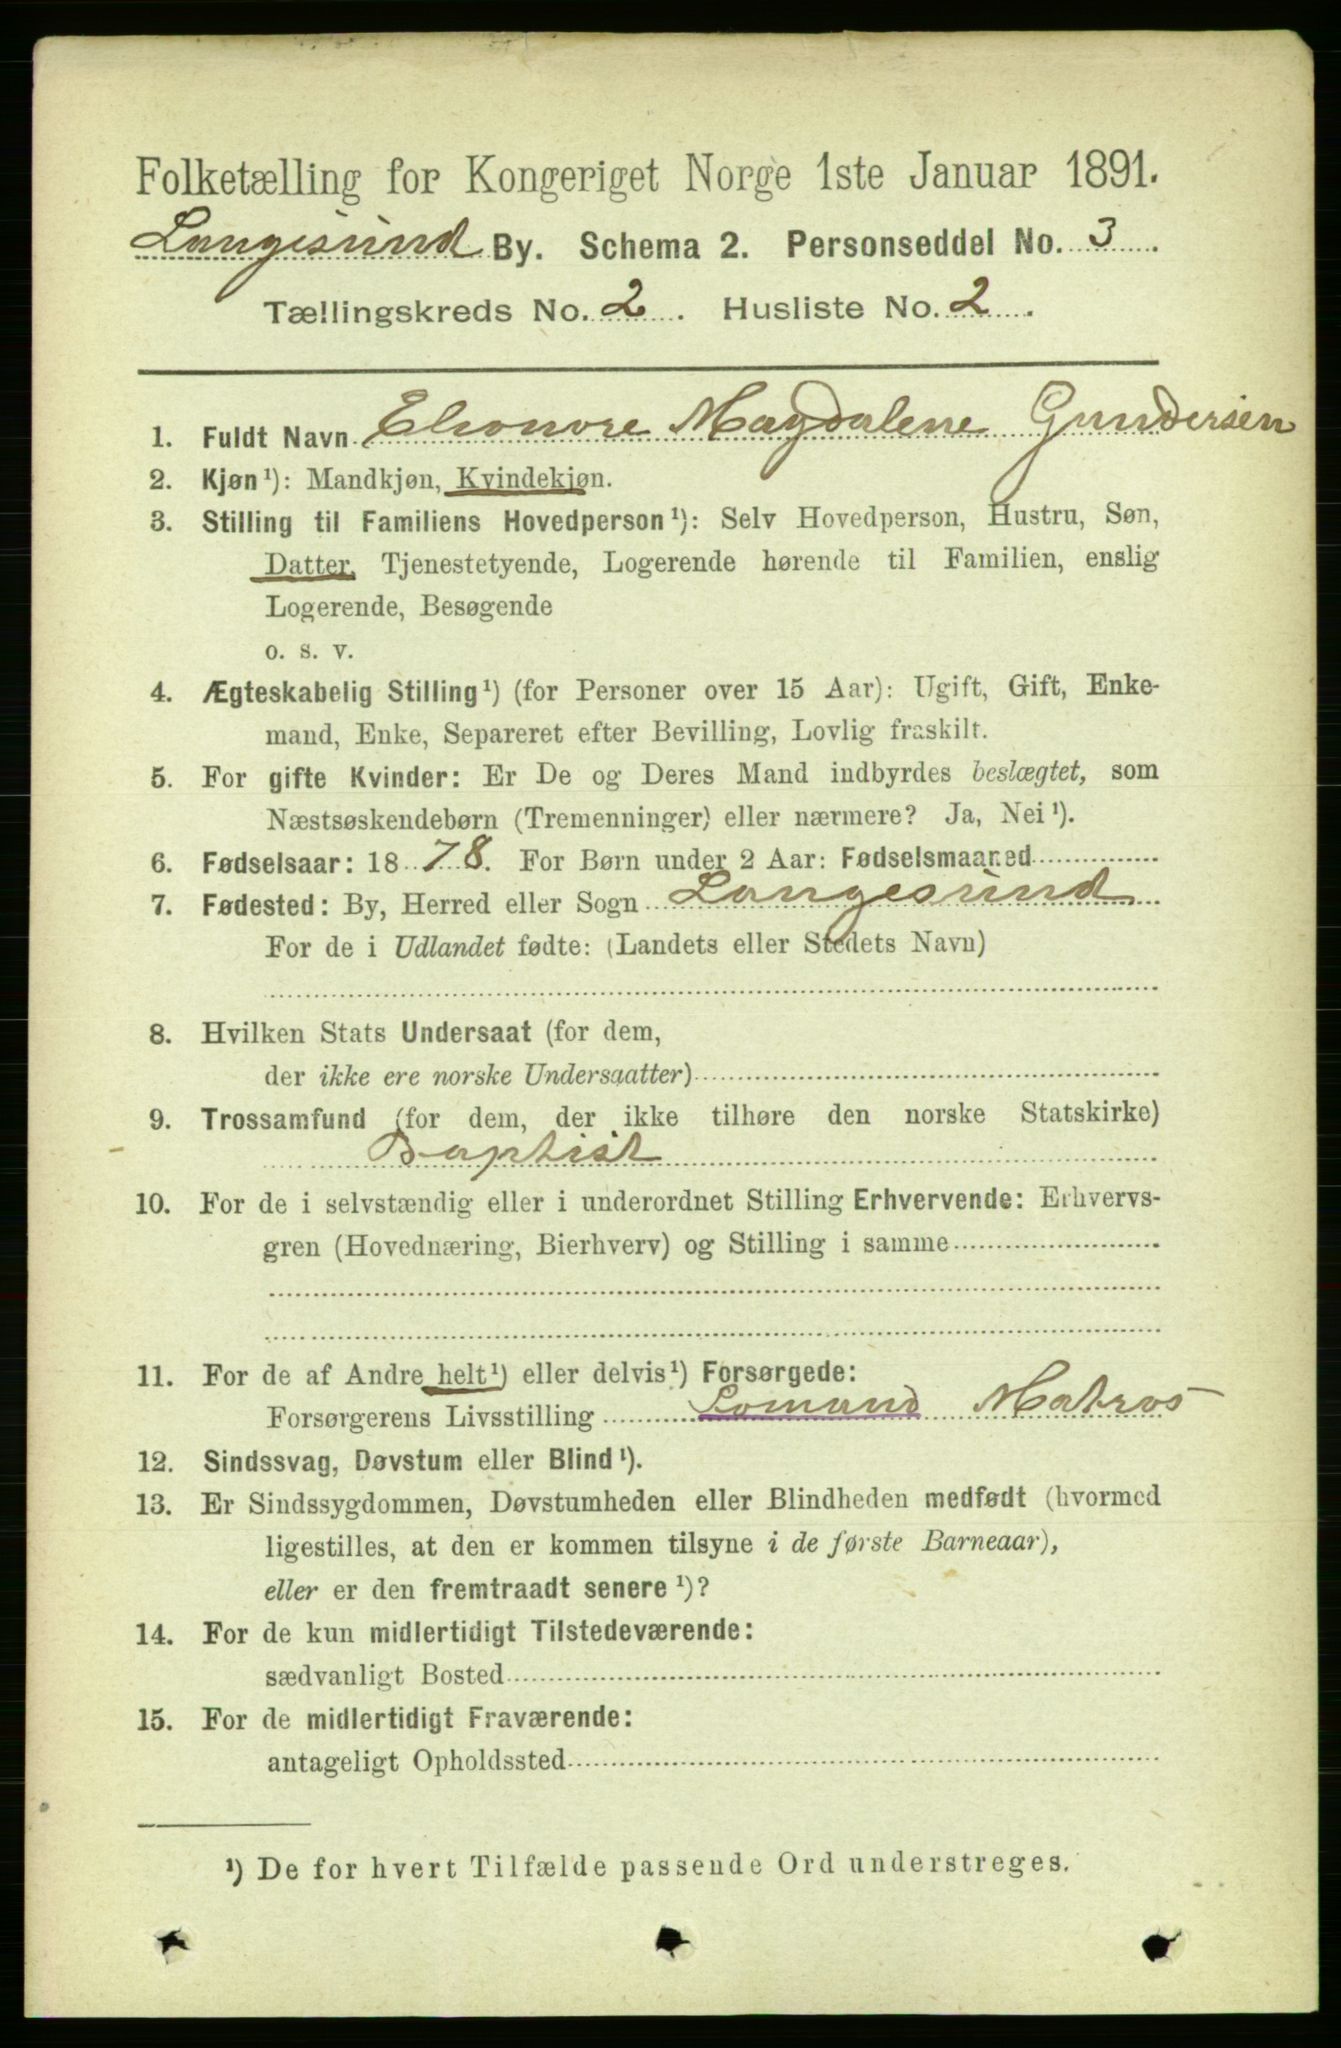 Folketælling for Kongeriget Norge 1ste Januar 1891.
Langesund By. Schema 2. Personseddel No. 3.
Tællingskreds No. 2. Husliste No. 2.
1. Fuldt Navn Elionore Magdalene Gundersen
2. Kjøn ¹): Mandkjøn, Kvindekjøn.
3. Stilling til Familiens Hovedperson ¹): Selv Hovedperson, Hustru, Søn,
Datter, Tjenestetyende, Logerende hørende til Familien, enslig
Logerende, Besøgende
o. s. v.
4. Ægteskabelig Stilling ¹) (for Personer over 15 Aar): Ugift, Gift, Enke-
mand, Enke, Separeret efter Bevilling, Lovlig fraskilt.
5. For gifte Kvinder: Er De og Deres Mand indbyrdes beslægtet, som
Næstsøskendebørn (Tremenninger) eller nærmere? Ja, Nei ¹).
6. Fødselsaar: 1878. For Børn under 2 Aar: Fødselsmaaned
7. Fødested: By, Herred eller Sogn Langesund
For de i Udlandet fødte: (Landets eller Stedets Navn)
8. Hvilken Stats Undersaat (for dem,
der ikke ere norske Undersaatter)
9. Trossamfund (for dem, der ikke tilhøre den norske Statskirke)
Baptist
10. For de i selvstændig eller i underordnet Stilling Erhvervende: Erhvervs-
gren (Hovednæring, Bierhverv) og Stilling i samme
11. For de af Andre helt ¹) eller delvis ¹) Forsørgede:
Forsørgerens Livsstilling Sømand Matros
12. Sindssvag, Døvstum eller Blind ¹).
13. Er Sindssygdommen, Døvstumheden eller Blindheden medfødt (hvormed
ligestilles, at den er kommen tilsyne i de første Barneaar),
eller er den fremtraadt senere ¹)?
14. For de kun midlertidigt Tilstedeværende:
sædvanligt Bosted
15. For de midlertidigt Fraværende:
antageligt Opholdssted
¹) De for hvert Tilfælde passende Ord understreges.